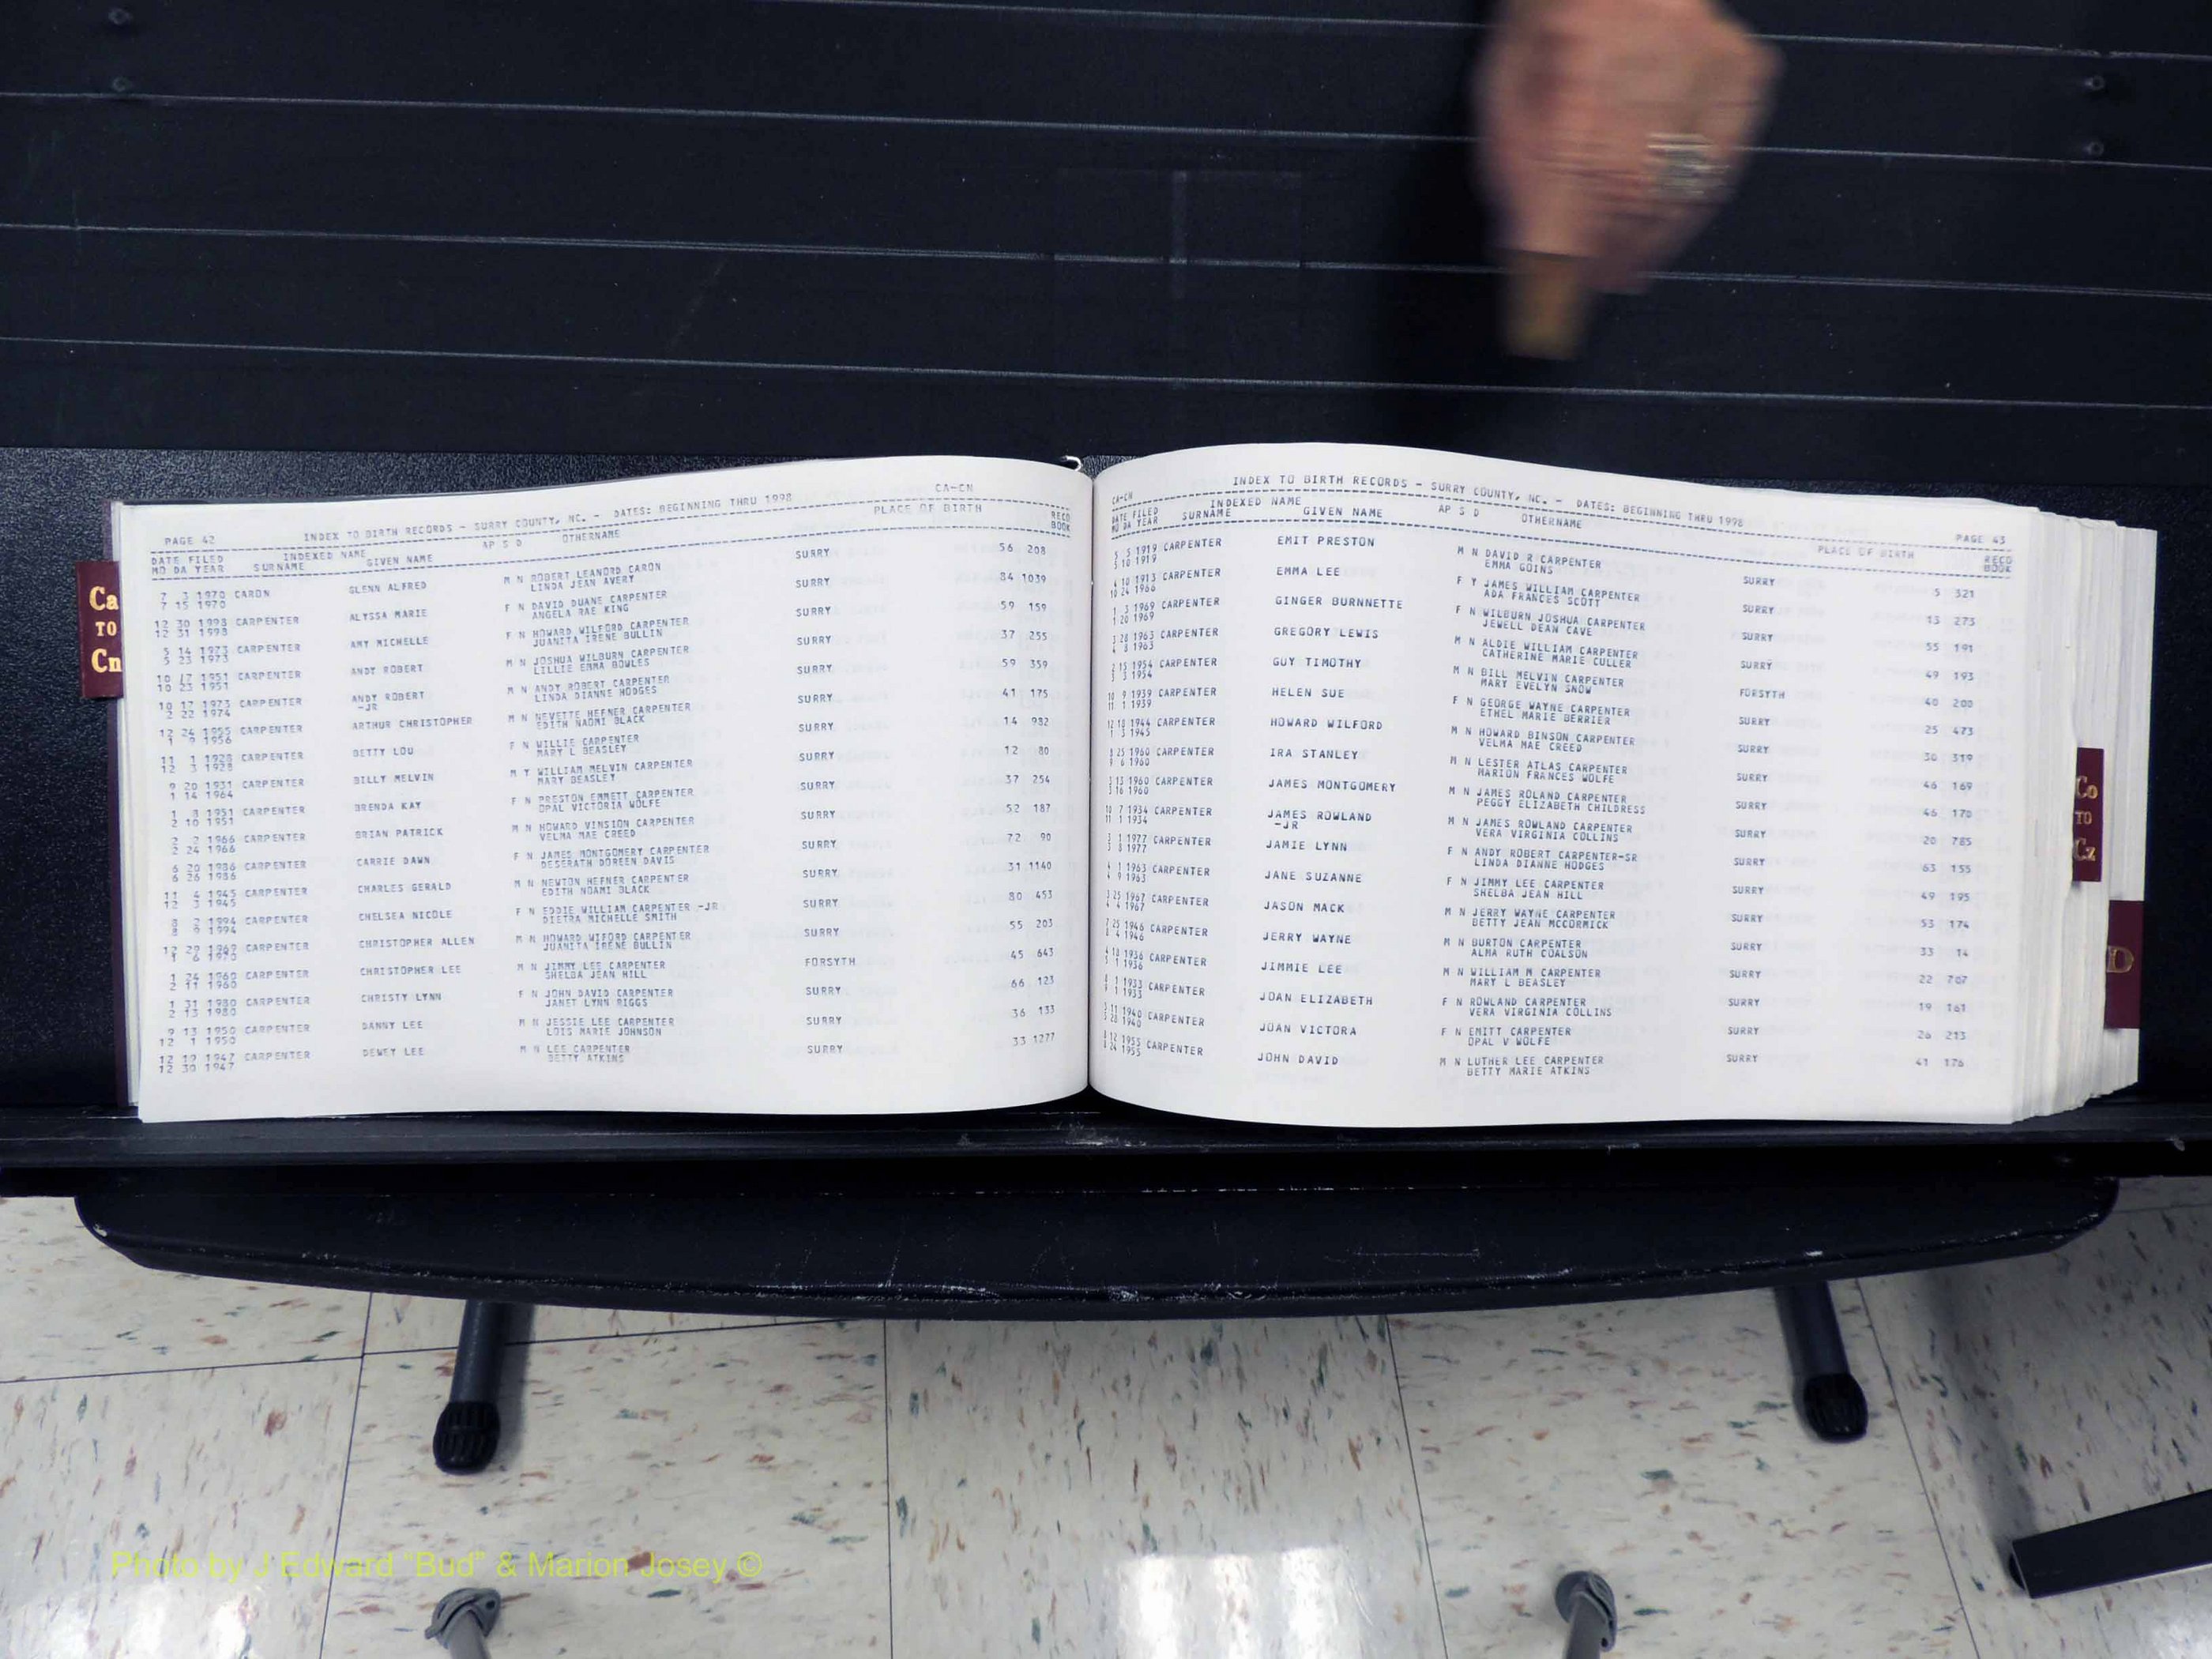 Ca
TO
Cn
PAGE 42 INDEX TO BIRTH RECORDS - SURRY COUNTY, NC. - DATES: BEGINNING THRU 1998 CA-CN
DATE FILED INDEXED NAME AP S D OTHERNAME PLACE OF BIRTH RECD
MO DA YEAR SURNAME GIVEN NAME BOOK
7 3 1970 CARON GLENN ALFRED M N ROBERT LEANORD CARON SURRY 56 208
7 15 1970 LINDA JEAN AVERY
12 30 1998 CARPENTER ALYSSA MARIE F N DAVID DUANE CARPENTER SURRY 84 1039
12 31 1998 ANGELA RAE KING
5 14 1973 CARPENTER AMY MICHELLE F N HOWARD WILFORD CARPENTER SURRY 59 159
5 23 1973 JUANITA IRENE BULLIN
10 17 1951 CARPENTER ANDY ROBERT M N JOSHUA WILBURN CARPENTER SURRY 37 255
10 23 1951 LILLIE EMMA BOWLES
10 17 1973 CARPENTER ANDY ROBERT M N ANDY ROBERT CARPENTER SURRY 59 359
2 22 1974 -JR LINDA DIANNE HODGES
12 24 1955 CARPENTER ARTHUR CHRISTOPHER M N NEVETTE HEFNER CARPENTER SURRY 41 175
1 9 1956 EDITH NAOMI BLACK
11 1 1928 CARPENTER BETTY LOU F N WILLIE CARPENTER SURRY 14 982
12 3 1928 MARY L BEASLEY
9 20 1931 CARPENTER BILLY MELVIN M Y WILLIAM MELVIN CARPENTER SURRY 12 80
1 14 1964 MARY BEASLEY
1 8 1951 CARPENTER BRENDA KAY F N PRESTON EMMETT CARPENTER SURRY 37 254
2 10 1951 OPAL VICTORIA WOLFE
2 2 1966 CARPENTER BRIAN PATRICK M N HOWARD VINSION CARPENTER SURRY 52 187
2 24 1966 VELMA MAE CREED
6 20 1986 CARPENTER CARRIE DAWN F N JAMES MONTGOMERY CARPENTER SURRY 72 90
6 26 1986 DESERATH DOREEN DAVIS
11 4 1945 CARPENTER CHARLES GERALD M N NEWTON HEFNER CARPENTER SURRY 31 1140
12 3 1945 EDITH NOAMI BLACK
8 2 1994 CARPENTER CHELSEA NICOLE F N EDDIE WILLIAM CARPENTER -JR SURRY 80 453
8 9 1994 DIETRA MICHELLE SMITH
12 29 1969 CARPENTER CHRISTOPHER ALLEN M N HOWARD WIFORD CARPENTER SURRY 55 203
1 6 1970 JUANITA IRENE BULLIN
1 24 1960 CARPENTER CHRISTOPHER LEE M N JIMMY LEE CARPENTER FORSYTH 45 643
2 11 1960 SHELBA JEAN HILL
1 31 1980 CARPENTER CHRISTY LYNN F N JOHN DAVID CARPENTER SURRY 66 123
2 13 1980 JANET LYNN RIGGS
9 13 1950 CARPENTER DANNY LEE M N JESSIE LEE CARPENTER SURRY 36 133
12 1 1950 LOIS MARIE JOHNSON
12 19 1947 CARPENTER DEWEY LEE M N LEE CARPENTER SURRY 33 1277
12 30 1947 BETTY ATKINS
CA-CN INDEX TO BIRTH RECORDS - SURRY COUNTY, NC. - DATES: BEGINNING THRU 1998 PAGE 43
DATE FILED INDEXED NAME AP S D OTHERNAME PLACE OF BIRTH RECD
MO DA YEAR SURNAME GIVEN NAME BOOK
5 5 1919 CARPENTER EMIT PRESTON M N DAVID R CARPENTER SURRY 5 321
5 10 1919 EMMA GOINS
4 10 1913 CARPENTER EMMA LEE F Y JAMES WILLIAM CARPENTER SURRY 13 273
10 24 1966 ADA FRANCES SCOTT
1 3 1969 CARPENTER GINGER BURNNETTE F N WILBURN JOSHUA CARPENTER SURRY 55 191
1 20 1969 JEWELL DEAN CAVE
3 28 1963 CARPENTER GREGORY LEWIS M N ALDIE WILLIAM CARPENTER SURRY 49 193
4 8 1963 CATHERINE MARIE CULLER
2 15 1954 CARPENTER GUY TIMOTHY M N BILL MELVIN CARPENTER FORSYTH 40 200
3 3 1954 MARY EVELYN SNOW
10 9 1939 CARPENTER HELEN SUE F N GEORGE WAYNE CARPENTER SURRY 25 473
11 1 1939 ETHEL MARIE BERRIER
12 18 1944 CARPENTER HOWARD WILFORD M N HOWARD BINSON CARPENTER SURRY 30 319
1 3 1945 VELMA MAE CREED
8 25 1960 CARPENTER IRA STANLEY M N LESTER ATLAS CARPENTER SURRY 46 169
9 6 1960 MARION FRANCES WOLFE
3 13 1960 CARPENTER JAMES MONTGOMERY M N JAMES ROLAND CARPENTER SURRY 46 170
3 16 1960 PEGGY ELIZABETH CHILDRESS
10 7 1934 CARPENTER JAMES ROWLAND M N JAMES ROWLAND CARPENTER SURRY 20 785
11 1 1934 -JR VERA VIRGINIA COLLINS
3 1 1977 CARPENTER JAMIE LYNN F N ANDY ROBERT CARPENTER-SR SURRY 63 155
3 8 1977 LINDA DIANNE HODGES
4 1 1963 CARPENTER JANE SUZANNE F N JIMMY LEE CARPENTER SURRY 49 195
4 9 1963 SHELBA JEAN HILL
3 25 1967 CARPENTER JASON MACK M N JERRY WAYNE CARPENTER SURRY 53 174
4 4 1967 BETTY JEAN MCCORMICK
25 1946 CARPENTER JERRY WAYNE M N BURTON CARPENTER SURRY 33 14
4 1946 ALMA RUTH COALSON
18 1936 CARPENTER JIMMIE LEE M N WILLIAM M CARPENTER SURRY 22 707
1 1936 MARY L BEASLEY
1 1933 CARPENTER JOAN ELIZABETH F N ROWLAND CARPENTER SURRY 19 161
1 1933 VERA VIRGINIA COLLINS
11 1940 CARPENTER JOAN VICTORA F N EMITT CARPENTER SURRY 26 213
28 1940 OPAL V WOLFE
12 1955 CARPENTER JOHN DAVID M N LUTHER LEE CARPENTER SURRY 41 176
24 1955 BETTY MARIE ATKINS
Co
TO
Cz
D
Photo by J Edward "Bud" & Marion Josey ©